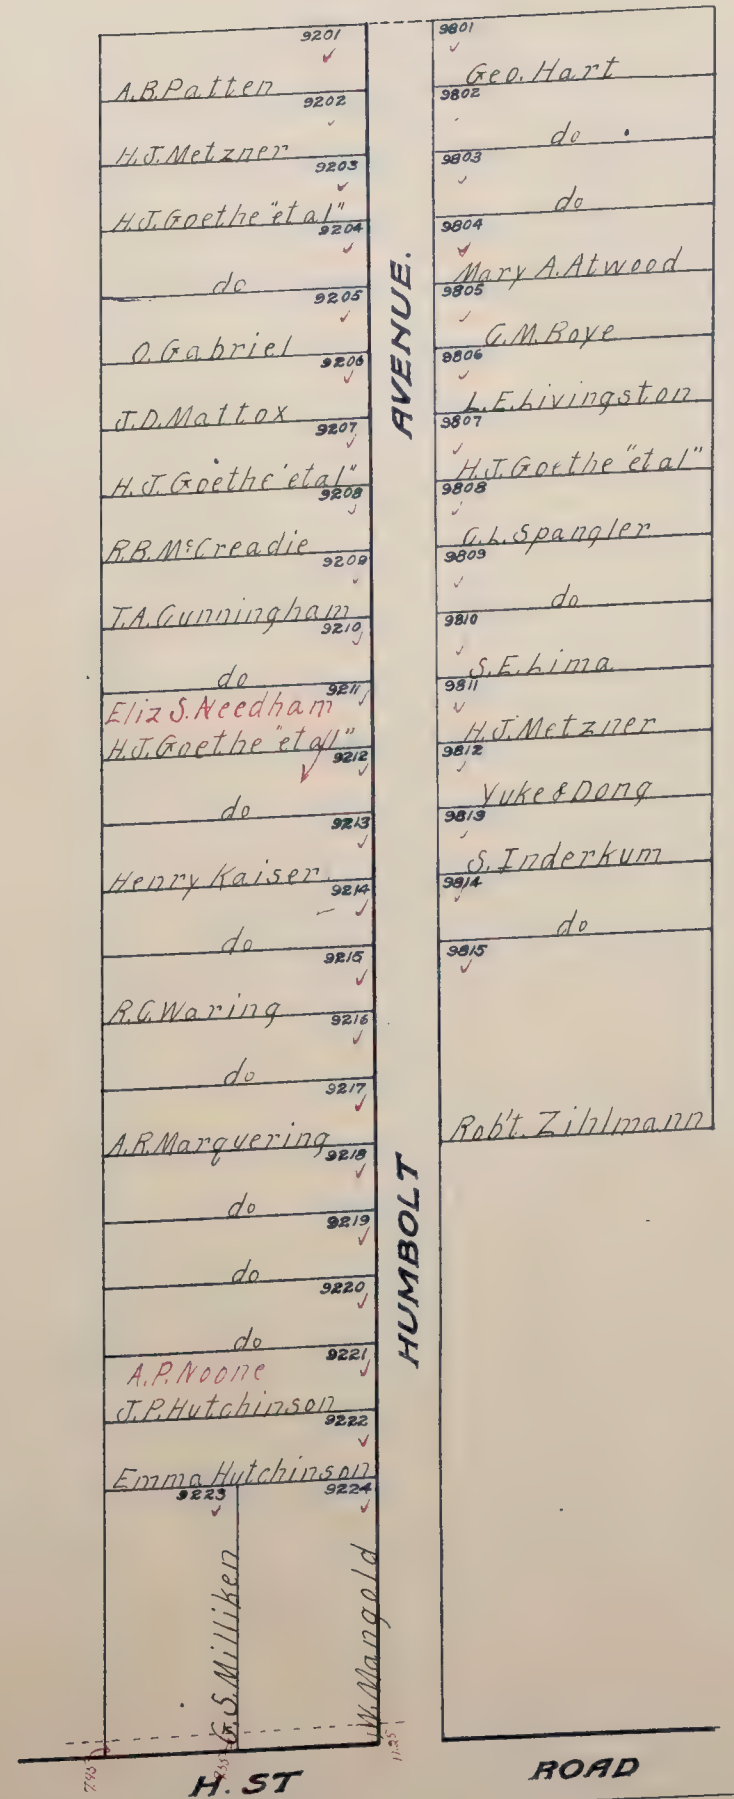 9201
A.B. Patten
9202
H.J. Metzner
9203
H.J. Goethe "et al"
9204
do
9205
O. Gabriel
9206
J.D. Mattox
9207
H.J. Goethe "et al"
9208
R.B. McCreadie
9209
T.A. Cunningham
9210
do
9211
Eliz S. Needham
H.J. Goethe "et al"
9212
do
9213
Henry Kaiser
9214
do
9215
R.C. Waring
9216
do
9217
A.R. Marquering
9218
do
9219
do
9220
do
9221
A.P. Noone
J.P. Hutchinson
9222
Emma Hutchinson
9223
G.S. Milliken
9224
W. Mangold
HUMBOLT AVENUE.
9801
Geo. Hart
9802
do
9803
do
9804
Mary A. Atwood
9805
C.M. Boye
9806
L.E. Livingston
9807
H.J. Goethe "et al"
9808
C.L. Spangler
9809
do
9810
S.E. Lima
9811
H.J. Metzner
9812
Yuke & Dong
9813
S. Inderkum
9814
do
9815
Rob't. Zihlmann
11.25
H. ST
ROAD